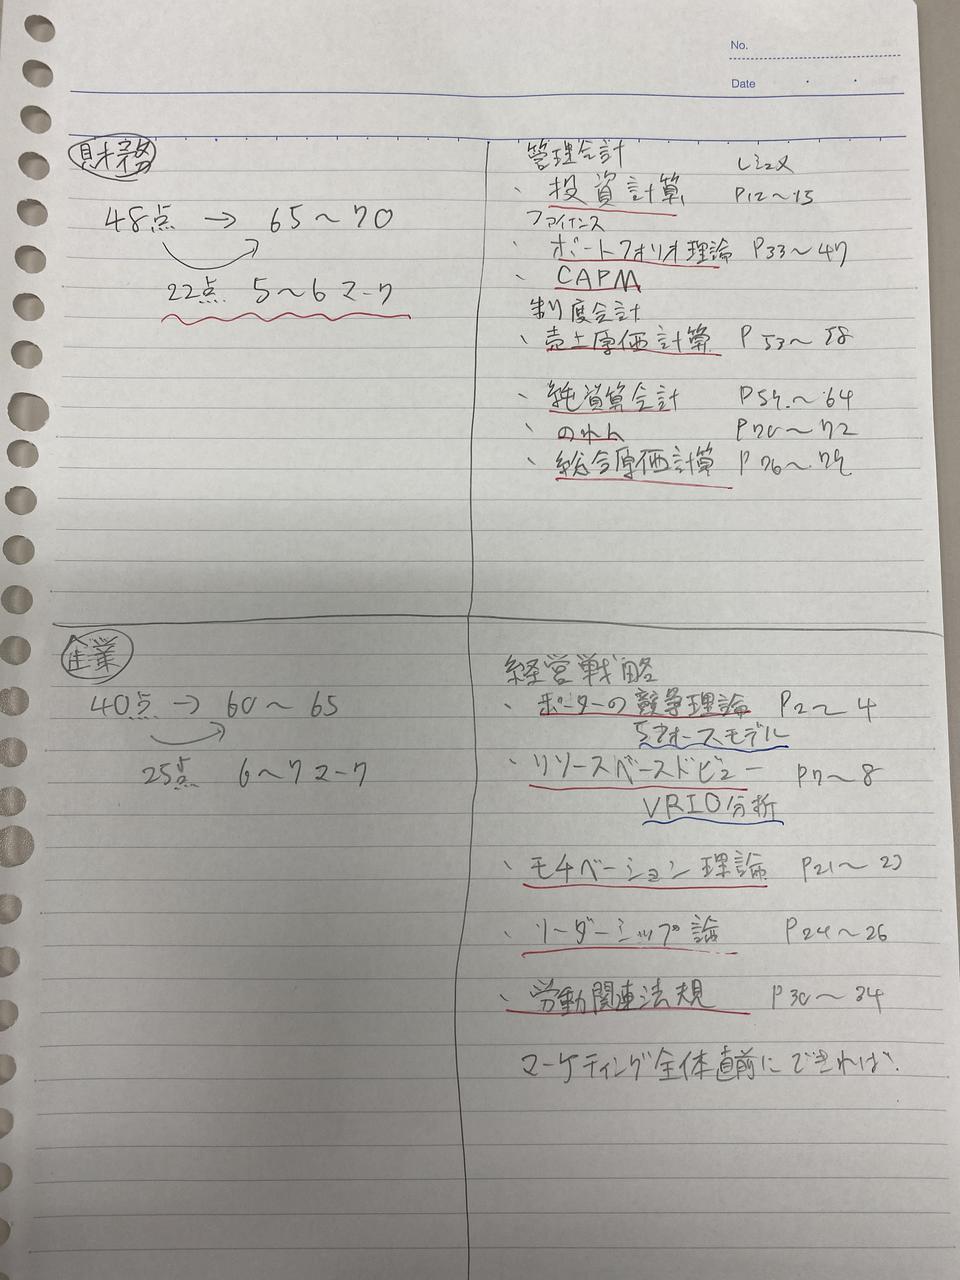 No.
Date
財務
48点 → 65〜70
22点 5〜6マーク
管理会計 レジュメ
、投資計算 P12〜15
ファイナンス
、ポートフォリオ理論 P33〜47
、CAPM
制度会計
、売上原価計算 P53〜58
、純資産会計 P59〜64
、のれん P70〜72
、総合原価計算 P76〜79
企業
40点 → 60〜65
25点 6〜7マーク
経営戦略
、ポーターの競争理論 P2〜4
5フォースモデル
、リソースベースドビュー P7〜8
VRIO分析
、モチベーション理論 P21〜23
、リーダーシップ論 P24〜26
、労働関連法規 P30〜34
マーケティング全体直前にできれば.